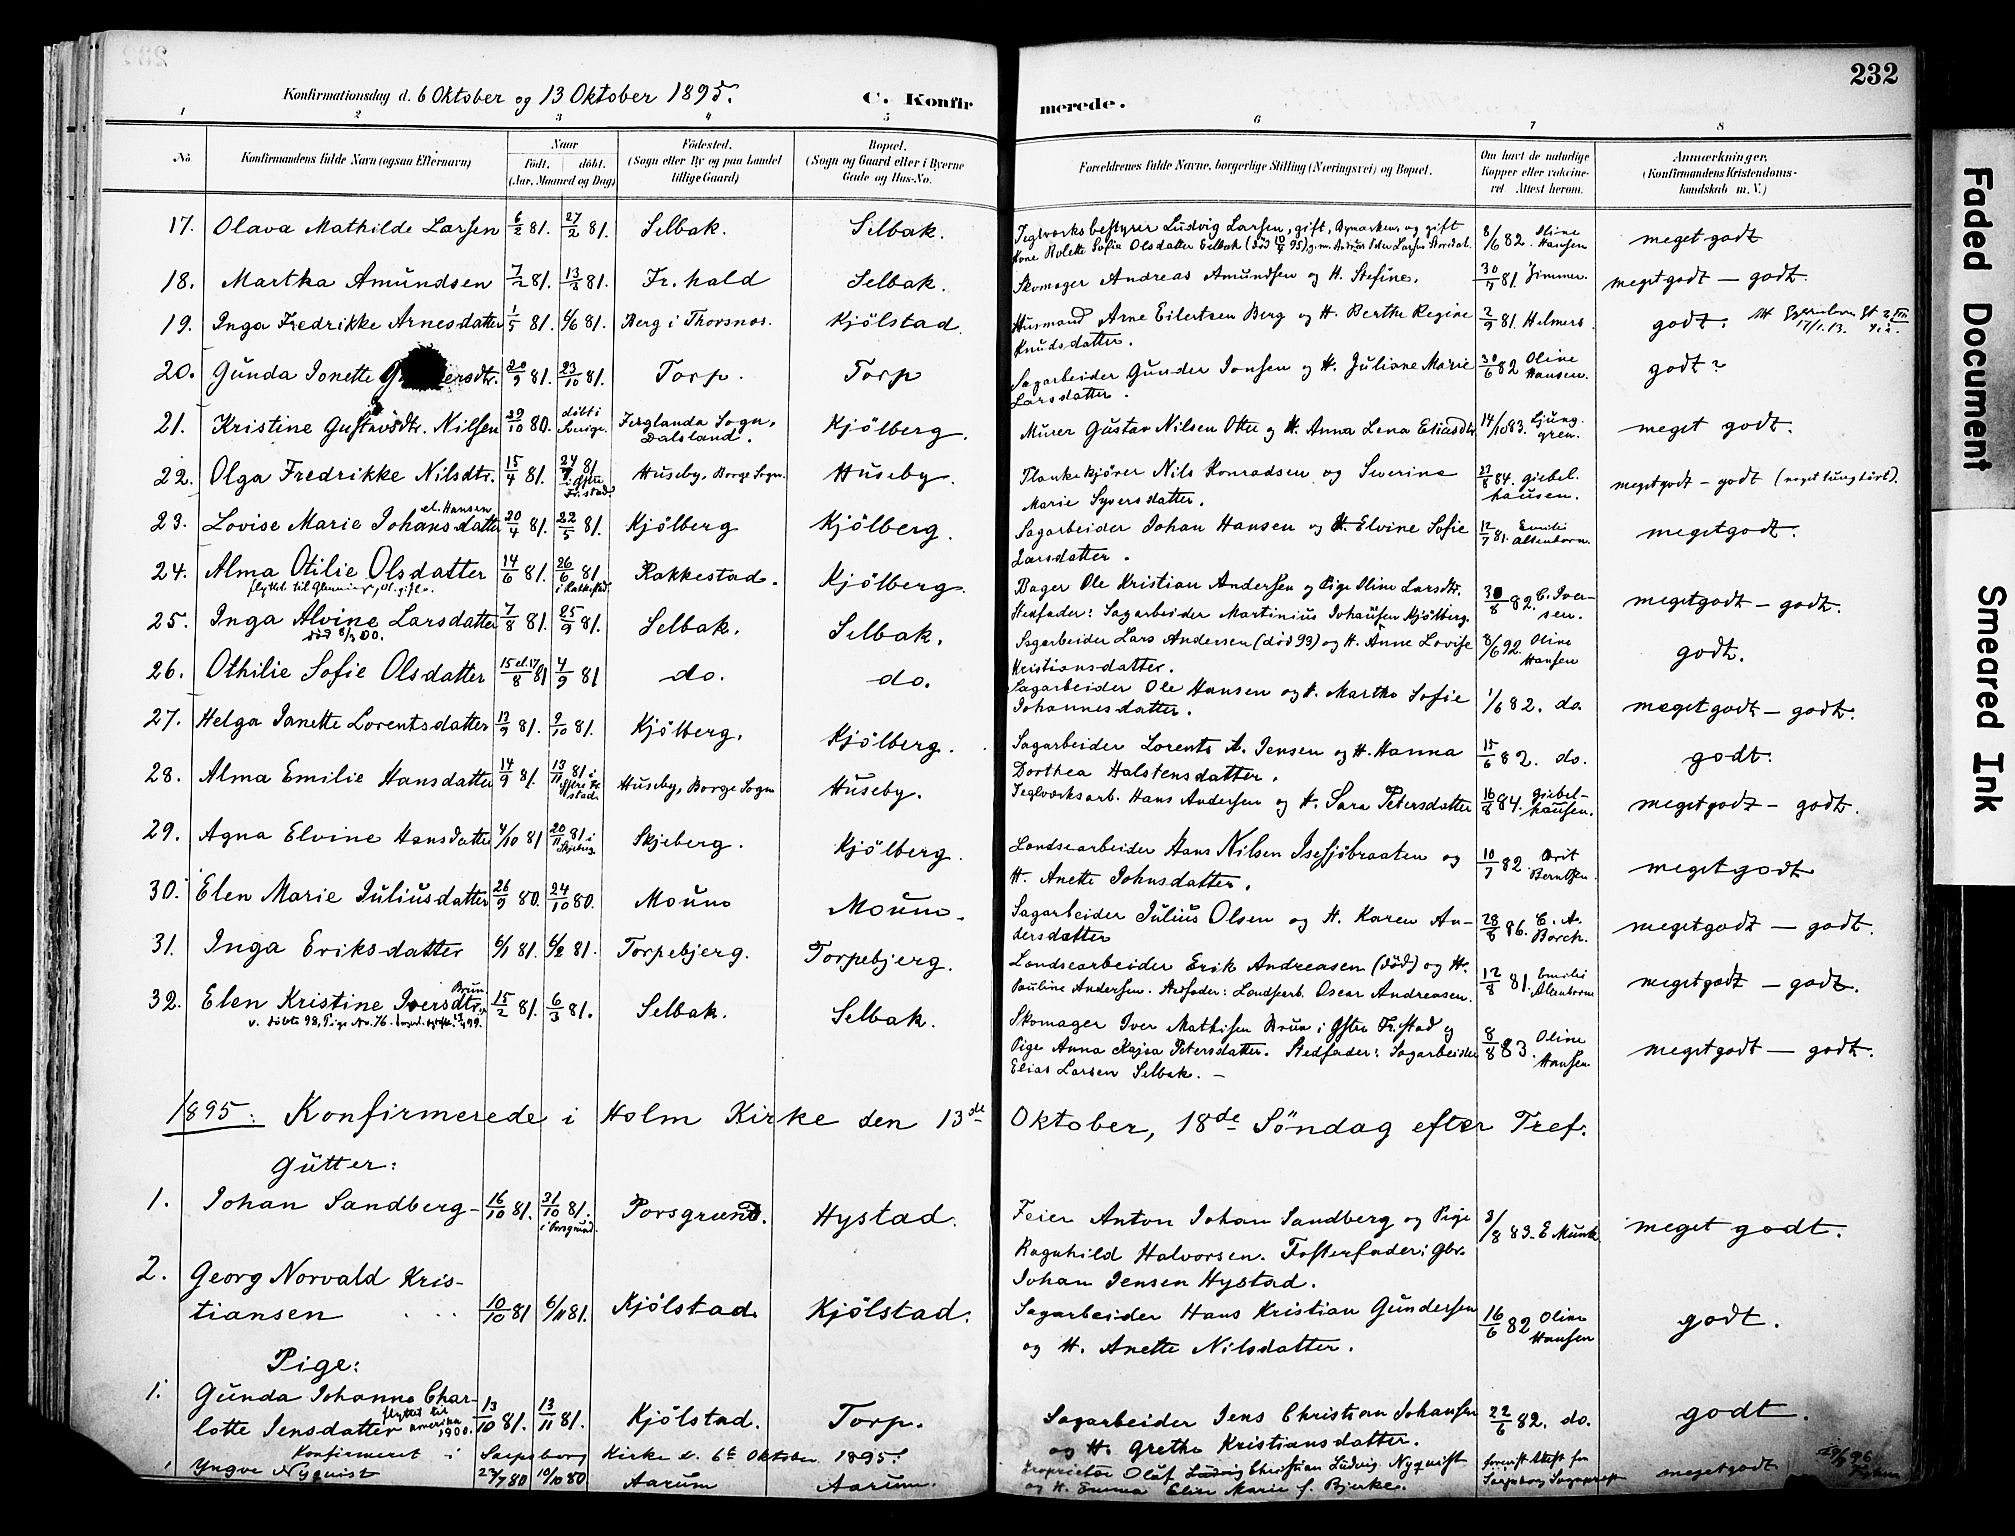 232
Konfirmationsdag d. 6 Oktober og 13 Oktober 1895. C. Konfirmerede.
1 2 3 4 5 6 7 8
No. Konfirmandens fulde Navn (ogsaa Efternavn) Naar født. døbt. (Aar, Maaned og Dag) Fødested. (Sogn eller By og paa Landet tillige Gaard) Bopæl. (Sogn og Gaard eller i Byerne Gade og Hus-No. Forældrenes fulde Navne, borgerlige Stilling (Næringsvei) og Bopæl. Om havt de naturlige Kopper eller vaccineret Attest herom. Anmærkninger. (Konfirmandens Kristendomskundskab m. V.)
17. Olava Mathilde Larsen 6/2 81. 27/2 81. Selbak. Selbak. Teglværksbestyrer Ludvig Larsen, gift, og gift
Sofie Olsdatter Selbak 8/6 82. Oline Hansen meget godt
18. Martha Amundsen 7/2 81. 13/3 81. Fr.hald Selbak. Skomager Andreas Amundsen og H. Stefine. 30/9 81 Zimmer. megetgodt – godt.
19. Inga Fredrikke Arnesdatter 1/5 81. 6/6 81. Berg i Thorsnes. Kjölstad. Husmand Arne Eilertsen Berg og H. Berthe Regine
Knudsdatter. 2/9 81. Helmers. godt.
20. Gunda Jonette Torp. Torp 20/9 81. 23/10 81. Sagarbeider Gunder Jonsen og H. Juliane Marie
Larsdatter. 30/6 82 Oline Hansen. godt?
21. Kristine Gustavsdtr. Nilsen 29/10 80. döbt i Sverige. Dalsland. Kjölberg. Murer Gustav Nilsen Otter og H. Anna Lena Eliasdtr. 14/10 83. Ljunggren. meget godt.
22. Olga Fredrikke Nilsdtr. 15/4 81. Huseby, Borge Sogn. Huseby. Plankekjörer Nils Konradsen og Severine
Marie Syversdatter. 84. Giebelhausen. megetgodt – godt (noget tunglært).
el. Hansen
23. Lovise Marie Johansdatter 20/4 81. 22/5 81. Kjölberg Kjölberg. Sagarbeider Johan Hansen og H. Elvine Sofie
Larsdatter. 12/7 81. Emilie Altenborn. megetgodt.
24. Alma Otilie Olsdatter 14/6 81. 26/6 81. i Rakkestad. Rakkestad. Kjölberg. Bager Ole Kristian Andersen og Pige Oline Larsdtr.
Stedfader: Sagarbeider Martinius Johansen Kjölberg. 82. C. Iversen. megetgodt – godt.
25. Inga Alvine Larsdatter 7/8 81. 25/9 81. Selbak. Selbak. Sagarbeider Lars Andersen (död 93) og H. Anne Lovise
Kristiansdatter. 8/6 92. Oline Hansen godt.
26. Othilie Sofie Olsdatter 15 el. 17/8 81 4/9 81 do. do. Sagarbeider Ole Hansen og H. Martha Sofie
Johannesdatter. 1/6 82. do. megetgodt – godt.
27. Helga Janette Lorentsdatter 13/9 81. 9/10 81. Kjölberg. Kjölberg. Sagarbeider Lorents A. Jensen og H. Hanna
Dorthea Halstensdatter. 15/6 82. do. godt.
28. Alma Emilie Hansdatter 14/9 81. 13/11 81 i Huseby, Borge Sogn Huseby. Teglværksarb. Hans Andersen og H. Sara Petersdatter 16/8 84. Giebelhausen. megetgodt – godt.
29. Agna Elvine Hansdatter 4/10 81 20/11 81 i Skjeberg Skjeberg. Kjölberg. Landsarbeider Hans Nilsen Isesjöbraaten og
H. Anette Johnsdatter. 10/7 82. Berntsen. megetgodt
30. Elen Marie Juliusdatter 26/9 80. 24/10 80. Moum Moum. Sagarbeider Julius Olsen og H. Karen Andersdatter
28/8 86. C. A. Borch. megetgodt – godt.
31. Inga Eriksdatter 6/1 81. 6/2 81. Torpebjerg. Torpebjerg. Landsearbeider Erik Andreasen (död) og H.
Pauline Andersen. Stedfader: Landsearb. Oscar Andreasen. 12/8 81. Emilie Altenborn megetgodt – godt.
Brun
32. Elen Kristine Iversdtr. 15/2 81. 6/3 81. Selbak. Selbak. Skomager Iver Mathisen Brun i Östre Fr.stad og
v. döbte 98, Pige No. 76. Pige Anna Kajsa Petersdatter. Stedfader: Sagarbeider
Elias Larsen Selbak. – 8/8 83. Oline Hansen megetgodt – godt.
1895: Konfirmerede i Holm Kirke den 13de Oktober, 18de Söndag efter Tref.
Gutter:
1. Johan Sandberg 16/10 81. 31/10 81. i Porsgrund. Porsgrund. Hystad. Feier Anton Johan Sandberg og Pige
Ragnhild Halvorsen. Fosterfader: Gbr.
Johan Jensen Hystad. 3/8 83. E Munk meget godt.
2. Georg Norvald Kristiansen
10/10 81 6/11 81. Kjölstad. Kjölstad. Sagarbeider Hans Kristian Gundersen
og H. Anette Nilsdatter. 16/6 82 Oline Hansen godt.
Pige:
1. Gunda Johanne Charlotte Jensdatter flyttet til Amerika 1900. 13/10 81. 13/11 81. Kjölstad. Torp. Sagarbeider Jens Christian Johansen
og H. Grethe Kristiansdatter. 22/6 82. do. godt.
Konfirmeret i Sarpsborg Kirke d. 6te Oktober 1895:
1 Yngve Nyquist 23/7 80 10/10 80 Aarum Aarum. Proprietær Oluf Ludvig Christian Ludvig Nyquist
og H. Emma Elise Marie f. Bjerke. forevist Attest fra Sarpsborg Sogneprest megetgodt
Faded Document
Smeared Ink